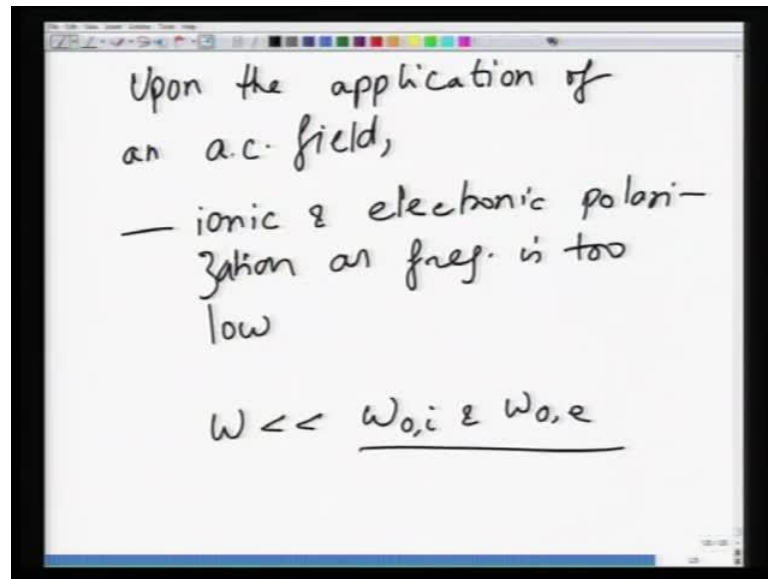 Upon the application of
an a.c. field,
— ionic & electronic polari-
zation as freq. is too
low
W << W₀,ᵢ & W₀,ₑ